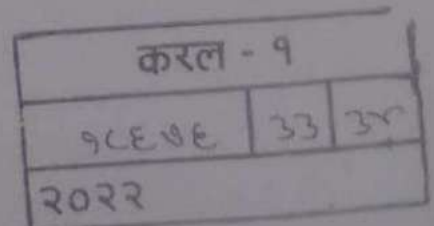 करल - १
१८६७६ 33 ३४
२०२२